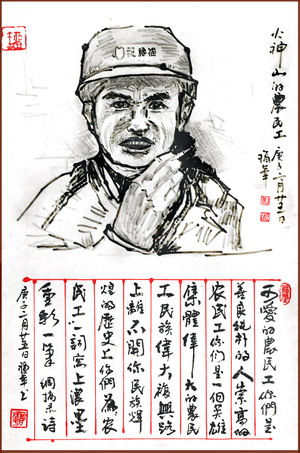 火神山的農民工
庚子二月廿二日
可愛的農民工你們是
善良纯朴的人崇高的
农民工你们是一個英雄
集體偉大的農民
工民族偉大復興路
上離不開你民族輝
煌的歷史上你們農
民工一詞寫上濃墨
重彩一筆 诗
庚子二月廿五日 書